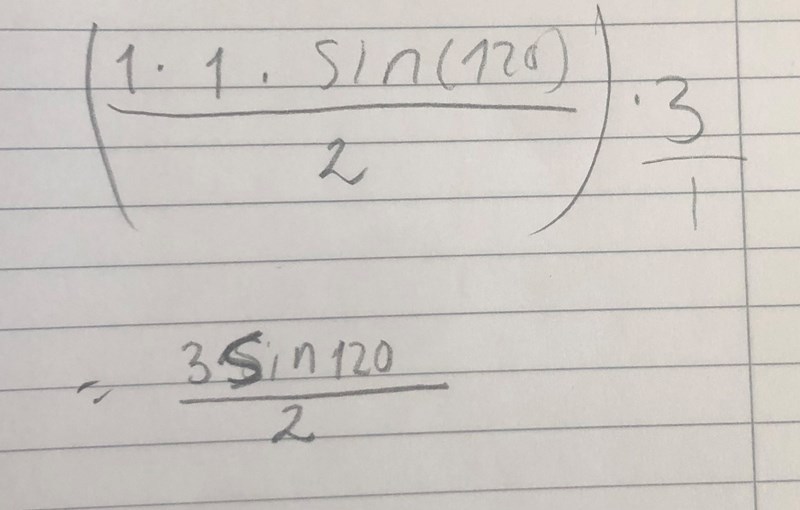 (1 · 1 · sin(120) / 2) · 3/1
= 3 sin 120 / 2